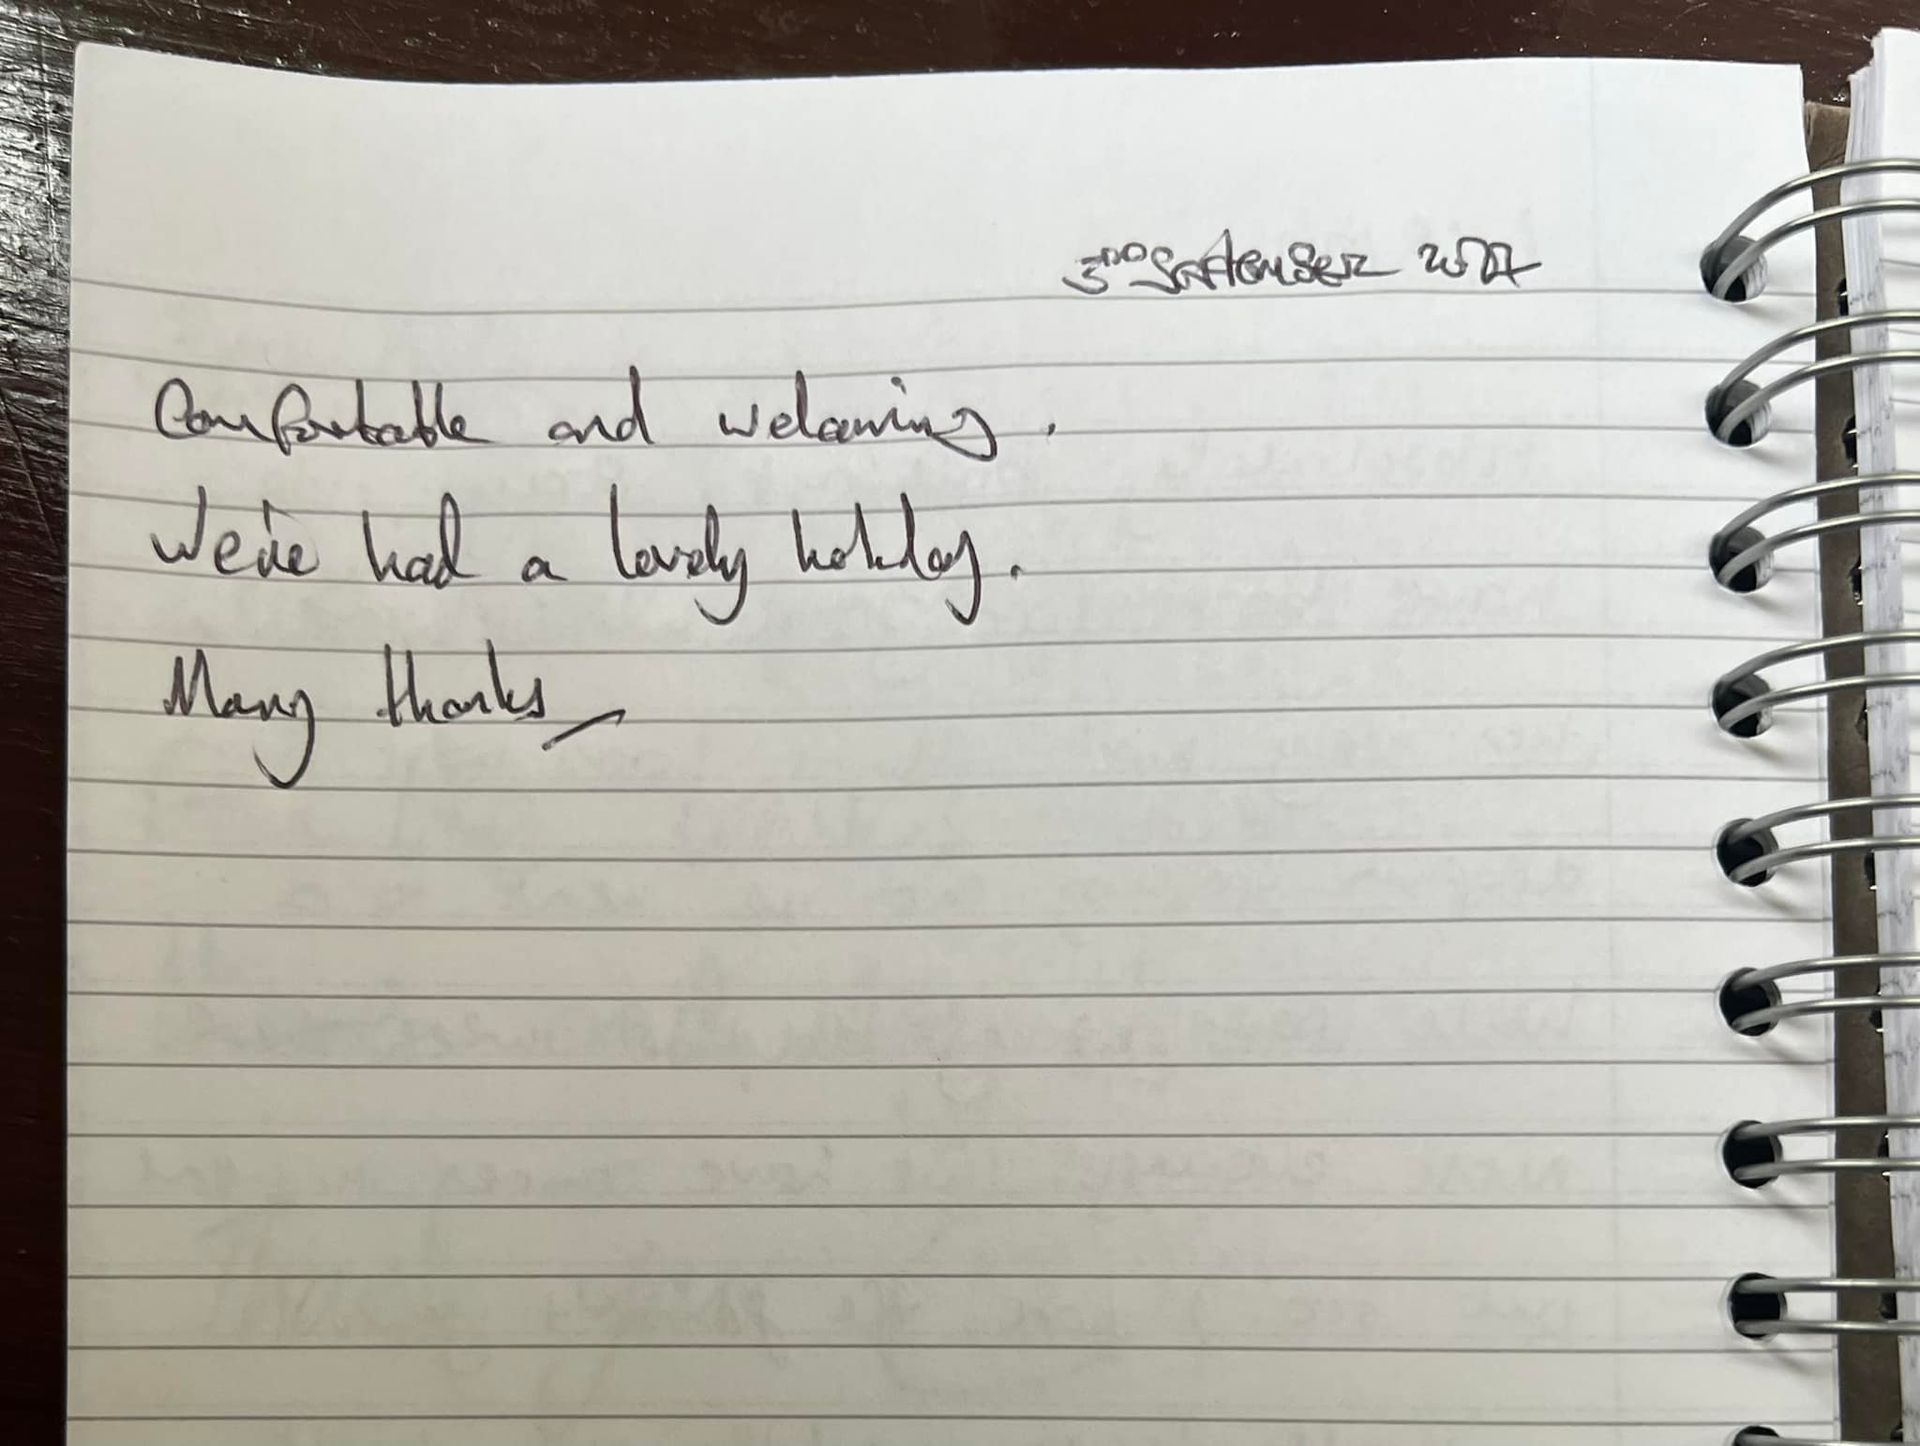 3RD September
Comfortable and welcoming.
We've had a lovely holiday.
Many thanks